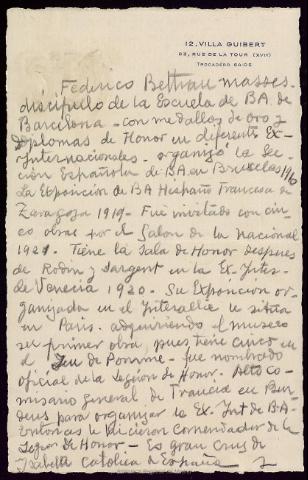 12, VILLA GUIBERT
83, RUE DE LA TOUR (XVIe)
TROCADÉRO
Federico Beltran Masses
discípulo de la Escuela de BA. de
Barcelona - con medallas de oro y
Diplomas de Honor en diferentes Ex-
Internacionales - organizó la Sec-
ción Española de BA en Bruselas
La Exposición de BA Hispano Francesa en
Zaragoza 1919 - Fué invitado con cin-
co obras por el Salon de la Nacional
1921. Tiene la Sala de Honor despues
de Rodin y Sargent en la Ex. Inter.
de Venecia 1920 - Su Exposición or-
ganizada en el Interallié le sitúa
en Paris. adquiriendo el museo
su primer obra, pues tiene cinco en
el Jeu de Pomme - fue nombrado
oficial de la Legion de Honor. Alto co-
misario general de Francia en Bur-
deus para organizar la Ex. Int de BA-
Entonces le hicieron Comendador de la
Legion de Honor - Es gran Cruz de
Isabel Catolica de España